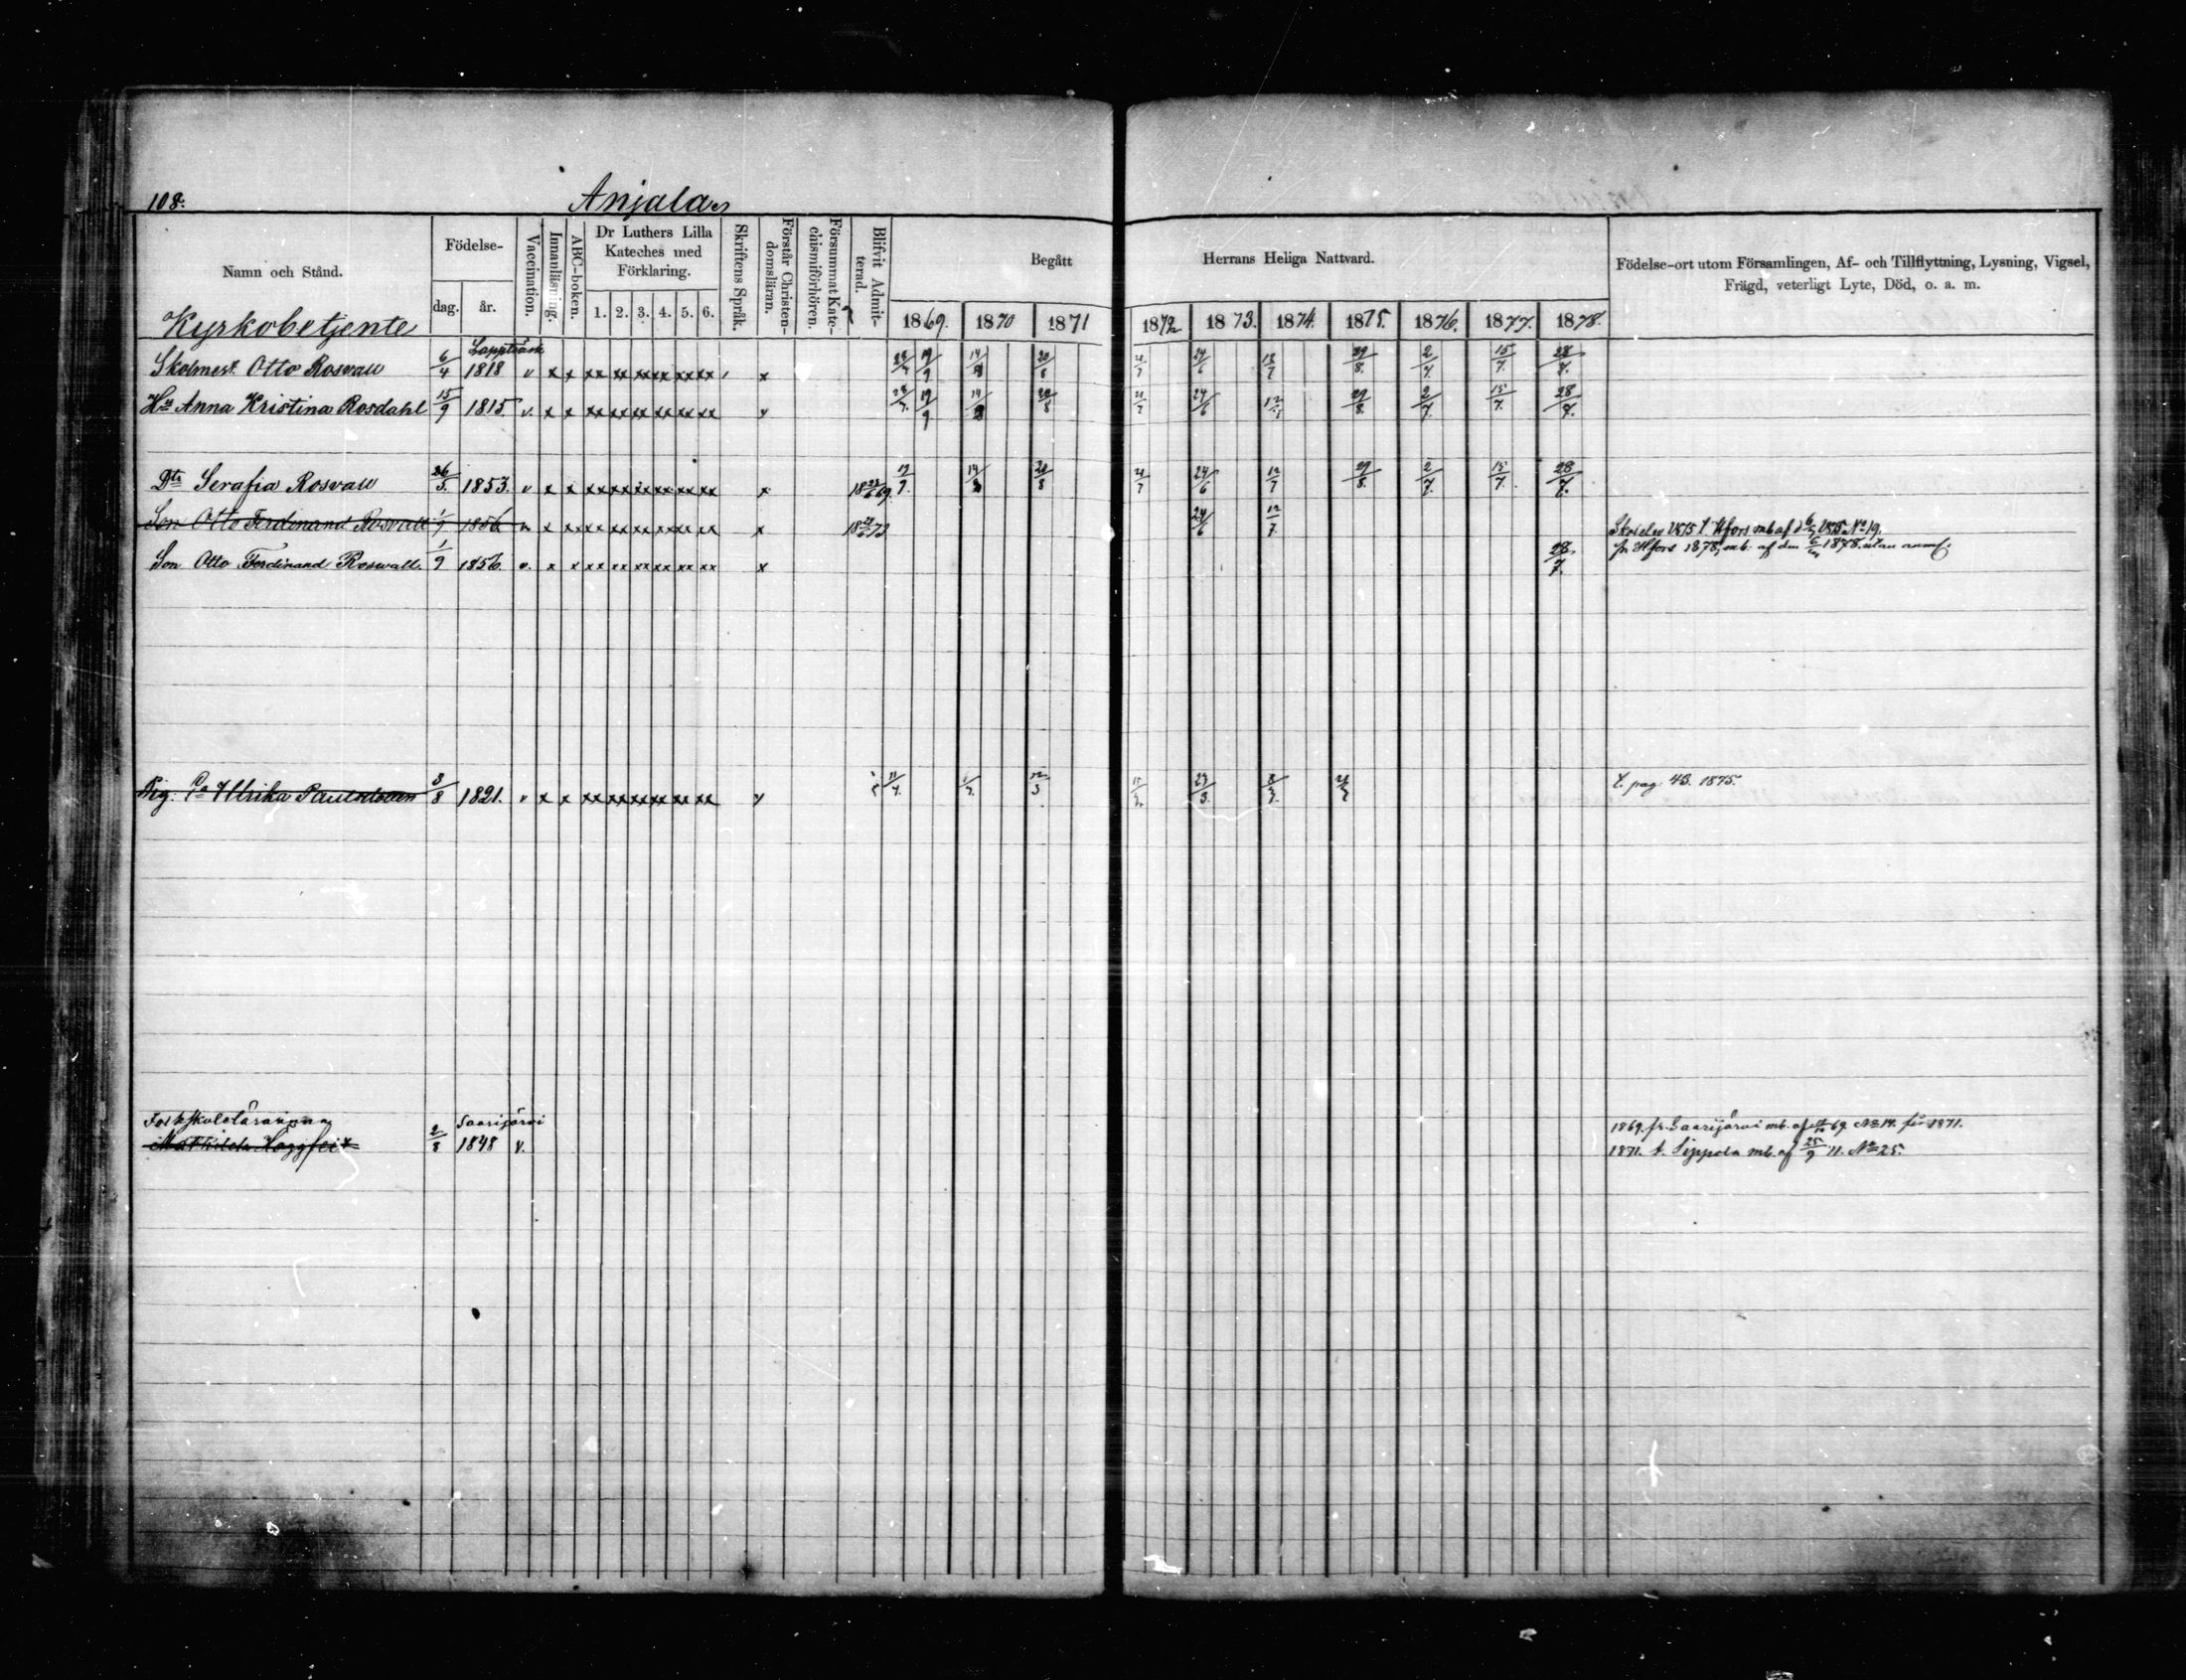 108.
Anjala
Namn och Stånd.
Födelse-
dag.
år.
Vaccination.
Innanläsning.
ABC-boken.
Dr Luthers Lilla
Kateches med
Förklaring.
1. 2. 3. 4. 5. 6.
Skriftens Språk.
Förstår Christen-
domsläran.
Försummat Kate-
chismiförhören.
Blifvit Admit-
terad.
Begått
Herrans Heliga Nattvard.
1869. 1870 1871 1872 1873. 1874. 1875. 1876. 1877. 1878.
Födelse-ort utom Församlingen, Af- och Tillflyttning, Lysning, Vigsel,
Frägd, veterligt Lyte, Död, o. a. m.
Kyrkobetjente
Lappträsk
Skolmest. Otto Rosvall 6/4 1818 v x x xx xx xx xx xx xx x 19/9 14/8 20/8 21/7 24/6 12/7 29/8. 2/7. 15/7. 28/7.
Hu Anna Kristina Rosdahl 15/9 1815. v. x x xx xx xx xx xx xx 19/9 14/8 20/8 21/7 24/6 12/7 29/8. 2/7. 15/7. 28/7.
Dtr Serafia Rosvall 26/5. 1853. v x x xx xx xx xx xx xx x 14/8 20/8 21/7 24/6 12/7 29/8. 2/7. 15/7. 28/7.
Son Otto Ferdinand Rosvall 1/9 1856 x x xx xx xx xx xx xx x 24/6 12/7. 1875 t. Hfors mb af No 19.
Son Otto Ferdinand Roswall. 1/9 1856. v. x x xx xx xx xx xx xx x 28/7. fr Hfors 1878, mb. af den 1878. utan anm
Ulrika 3/8 1821. v x x xx xx xx xx xx xx 23/3. 8/3. t. pag. 43. 1875.
Folkskolelärarinna Saarijärvi 1869. fr. Saarijärvi mb. af 69. No 14. för 1871.
Mathilda 2/8 1848 v. 1871. t. Sippola mb. af 25/9 71. No 25.